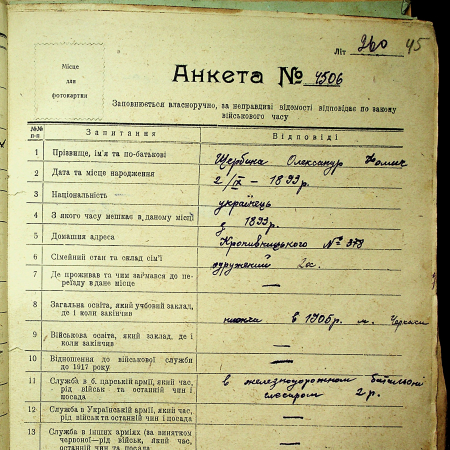 Літ 260 45
Місце
для
фотокартки
Анкета № 4506
Заповнюється власноручно, за неправдиві відомості відповідає по закону
військового часу
№№ п-п Запитання Відповіді
1 Прізвище, ім'я та по-батькові Щербина Олександр Хомич
2 Дата та місце народження 2/IX – 1893 р.
3 Національність українець
4 З якого часу мешкає в даному місці з 1893р.
5 Домашня адреса Кропивницького № 373
6 Сімейний стан та склад сім'ї одружений 2ос.
7 Де проживав та чим займався до переїзду в дане місце —
8 Загальна освіта, який учбовий заклад,
де і коли закінчив в 1905 р. м. Черкаси
9 Військова освіта, який заклад, де і
коли закінчив —
10 Відношення до військової служби
до 1917 року —
11 Служба в б. царській армії, який час,
рід військ та останній чин і
посада в железнодорожном батальоні
слюсаром 2 р.
12 Служба в Українській армії, який час,
рід військ та останній чин і посада —
13 Служба в інших арміях (за винятком
червоної—рід військ, який час,
останній чин та посада —